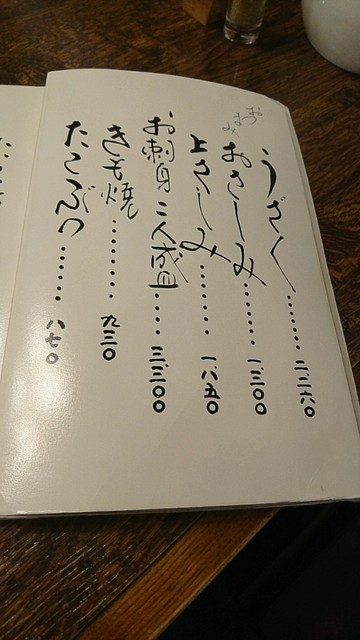 おつまみ
うざく……… 二、二六〇
おさしみ……… 一、三〇〇
上さしみ……… 一、八五〇
お刺身 二人盛…… 三、三〇〇
きも焼……… 九三〇
たこぶつ…… 八七〇